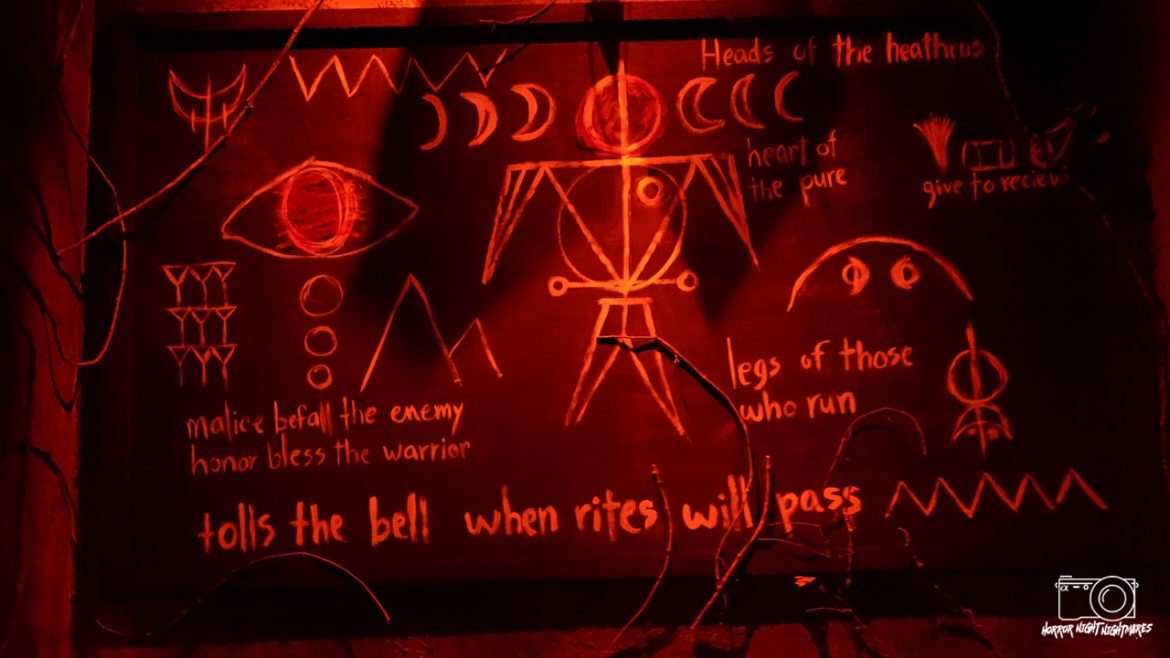 Heads of the heathens
heart of
the pure
give to recieve
legs of those
who run
malice befall the enemy
honor bless the warrior
tolls the bell when rites will pass
HORROR NIGHT NIGHTMARES